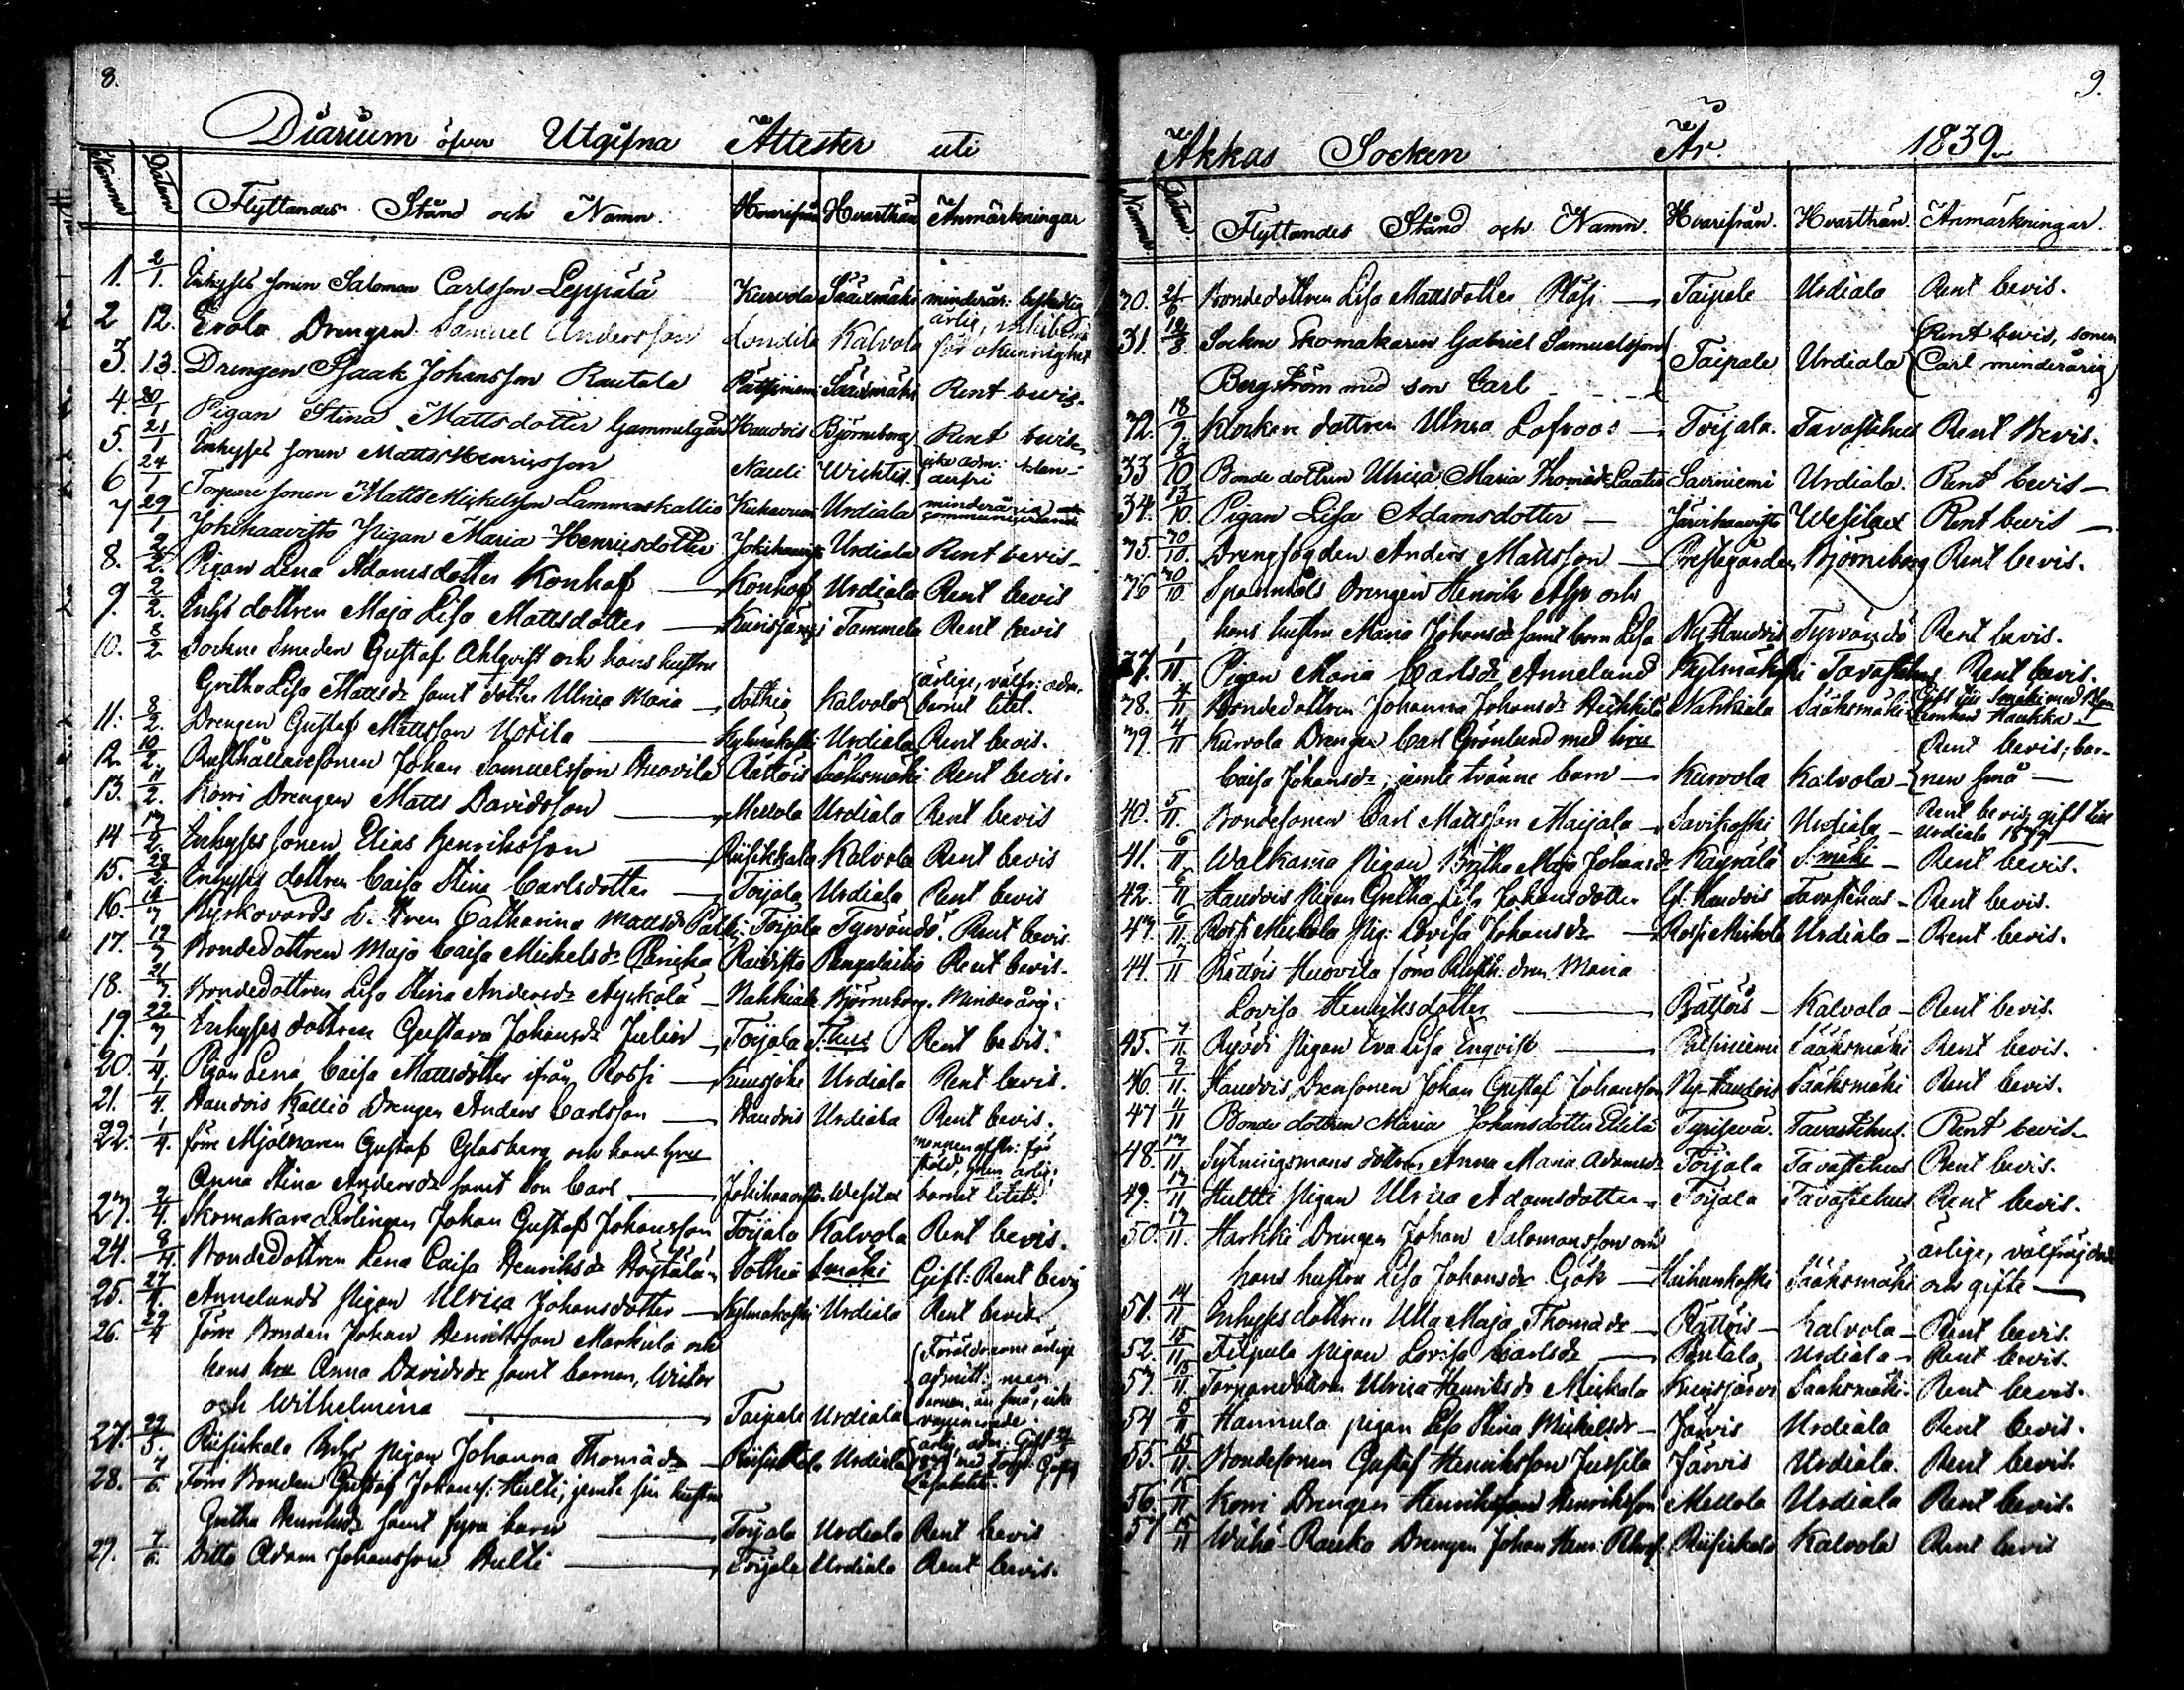 8.
Diarium öfver Utgifna Attester uti
Nummer Datum Flyttandes Stånd och Namn Hvarifrån Hvarthän Anmärkningar
1. 2/1. Inhyses sonen Salomon Carlsson Leppälä Kurvola Sääxmäki minderår:
2 12. Drengen Samuel Andersson Kalvola ärlig,
3. 13. Drengen Isaak Johansson Rautala Sääxmäki Rent bevis.
4. 20/1 Pigan Stina Mattsdotter Gammelgård Haudois Björneborg Rent bevis
5. 21/1 Inhyses sonen Matts Henricsson Nauli Wichtis
6 24/1 Torpare sonen Matts Mickelsson Lammaskallio Urdiala minderårig
7 29/1 Jokihaavisto Pigan Maria Henricsdotter Urdiala Rent bevis
8. 2/2. Pigan Lena Adamsdotter Konhof Konhof Urdiala Rent bevis
9. 2/2. Inhys dottren Maja Lisa Mattsdotter Kurisjärvi Tammela Rent bevis
10. 8/2 Sockne Smeden Gustaf Ahlqvist och hans hustru
Gretha Lisa Mattsdr samt dotter Ulrica Maria Sotkia Kalvola ärlige, välfr: adm. barnet litet.
11. 8/2. Drengen Gustaf Mattsson Uotila Kylmäkoski Urdiala Rent bevis.
12. 10/2. Rusthållaresonen Johan Samuelsson Huovila Rättöis Sääksmäki Rent bevis.
13. 11/2. Korri Drengen Matts Davidsson Mellola Urdiala Rent bevis
14 Inhyses sonen Elias Henriksson Riisikkala Kalvola Rent bevis
15. 28/2. Inhyses dottren Caisa Stina Carlsdotter Toijala Urdiala Rent bevis
16. Kyrkovärds dottren Catharina Mattsdr Toijala Tyrvändö. Rent bevis
17. 19/3 Bondedottren Maja Caisa Mickelsdr Ränikä Rent bevis.
18. 21/3. Bondedottren Lisa Stina Andersdr Nyrkölä Nahkiala Björneborg. Minderårig.
19. 22/3 Inhyses dottren Gustava Johansdr Julin Toijala T:hus Rent bevis.
20. 1/4. Pigan Lena Caisa Mattsdotter ifrån Rossi Urdiala Rent bevis.
21. 1/4. Haudois Kallio Drengen Anders Carlsson Haudois Urdiala Rent bevis.
22. 1/4. förre Mjölnaren Gustaf Glasberg och hans hru
Anna Stina Andersdr samt Son Carl Jokihaavisto Wesilax barnet litet.
23. 2/4. Skomakare Lärlingen Johan Gustaf Johansson Toijala Kalvola Rent bevis.
24. 8/4. Bondedottren Lena Caisa Henriksdr Höytälä Sotkia Smäki Gift: Rent bevis
25. 27/4. Annelunds Pigan Ulrica Johansdotter Kylmäkoski Urdiala Rent bevis.
26. 29/4 förre Bonden Johan Henriksson Markula och
hans hru Anna Davidsdr samt barnen, Victor
och Wilhelmina Taipale Urdiala Föräldrarne ärlige admitt: men barnen än små,
27. 22/5. Riisikala Inhs pigan Johanna Thomädr Riisikkala Urdiala ärlig, adm:
28. 4/6. Förre Bonden Gustaf Johanss: Hulti, jemte sin hustru
Gretha Henriksdr samt fyra barn Toijala Urdiala Rent bevis
29. 4/6. Ditto Adam Johansson Hulti Toijala Urdiala Rent bevis.
9.
Akkas Socken År 1839.
Nummer Datum. Flyttandes Stånd och Namn. Hvarifrån. Hvarthän. Anmärkningar.
30. 21/6 Bondedottren Lisa Mattsdotter Taipale Urdiala Rent bevis.
31. 19/8. Sockne Skomakaren Gabriel Samuelsson
Bergström med son Carl Taipale Urdiala Rent bevis, sonen Carl minderårig
32. 18/9 Klockare dottren Ulrica Lofroos Toijala. Tavastehus Rent Bevis.
33 8/10 Bonde dottren Ulrica Maria Thomädr Laatu Saviniemi Urdiala. Rent bevis
34. 13/10. Pigan Lisa Adamsdotter Järvihaavisto Wesilax Rent bevis
35. 30/10. Drengfogden Anders Mattsson Prestegården Björneborg Rent bevis.
36 30/10. Spannmåls Drengen Henrik Alp och
hans hustru Maria Johansdr samt barn Lisa Ny-Haudois Tyrvändö Rent bevis.
37. 1/11. Pigan Maria Carlsdr Annelund Kylmäkoski Tavastehus Rent bevis.
38. 4/11 Bondedottren Johanna Johansdr Heikkilä Nahkiala Sääksmäki
39. 4/11 Kurvola Drengen Carl Grönlund med hru
Caisa Johansdr, jemte tvänne barn Kurvola Kalvola Rent bevis; barnen små
40. 5/11. Bondesonen Carl Mattsson Maijala Savikoski Urdiala Rent bevis gift till Urdiala 1839
41. 6/11. Walkama Pigan Britha Maja Johansdr Käyrälä S:mäki Rent bevis.
42. 6/11 Haudois Pigan Gretha Lisa Johansdotter Gl. Haudois Tavastehus Rent bevis.
43. 6/11. Rossi Mickola Pig: Lovisa Johansdr Rossi Mickola Urdiala Rent bevis.
44. 7/11 Rättöis Huovila förra Rusth: dren Maria
Lovisa Henriksdotter Rättöis Kalvola Rent bevis.
45. 7/11. Ryödi Pigan Eva Lisa Enqvist Pätsiniemi Sääksmäki Rent bevis.
46 9/11. Haudois Drensonen Johan Gustaf Johansson Ny-Haudois Sääksmäki Rent bevis.
47 11/11 Bonde dottren Maria Johansdotter Eskilä Tavastehus. Rent bevis
48. 13/11 Sytningsmans dottren Anna Maria Adamsdr Toijala Tavastehus Rent bevis.
49. 13/11 Hultti Pigan Ulrica Adamsdotter Toijala Tavastehus Rent bevis.
50. 13/11. Harkki Drengen Johan Salomonsson och
hans hustru Lisa Johansdr Gök Sääksmäki ärlige, välfräjdade och gifte
51. 14/11 Inhyses dottren Ulla Maja Thomädr Rättöis Kalvola Rent bevis.
52. 15/11 Filpula pigan Lovisa Carlsdr Pentala Urdiala Rent bevis.
53. 15/11. Torparedottren Ulrica Henriksdr Mickola Kurisjärvi Sääksmäki. Rent bevis.
54 15/11 Hannula pigan Lisa Stina Mickelsdr Jarvis Urdiala Rent bevis.
55. 15/11. Bondesonen Gustaf Henriksson Jussila Jarvis Urdiala. Rent bevis.
56. 15/11 Korri Drengen Henrik Henriksson Mellola Urdiala Rent bevis.
57 15/11 Wähä-Rauko Drengen Johan Henr: Riisikala Kalvola Rent bevis